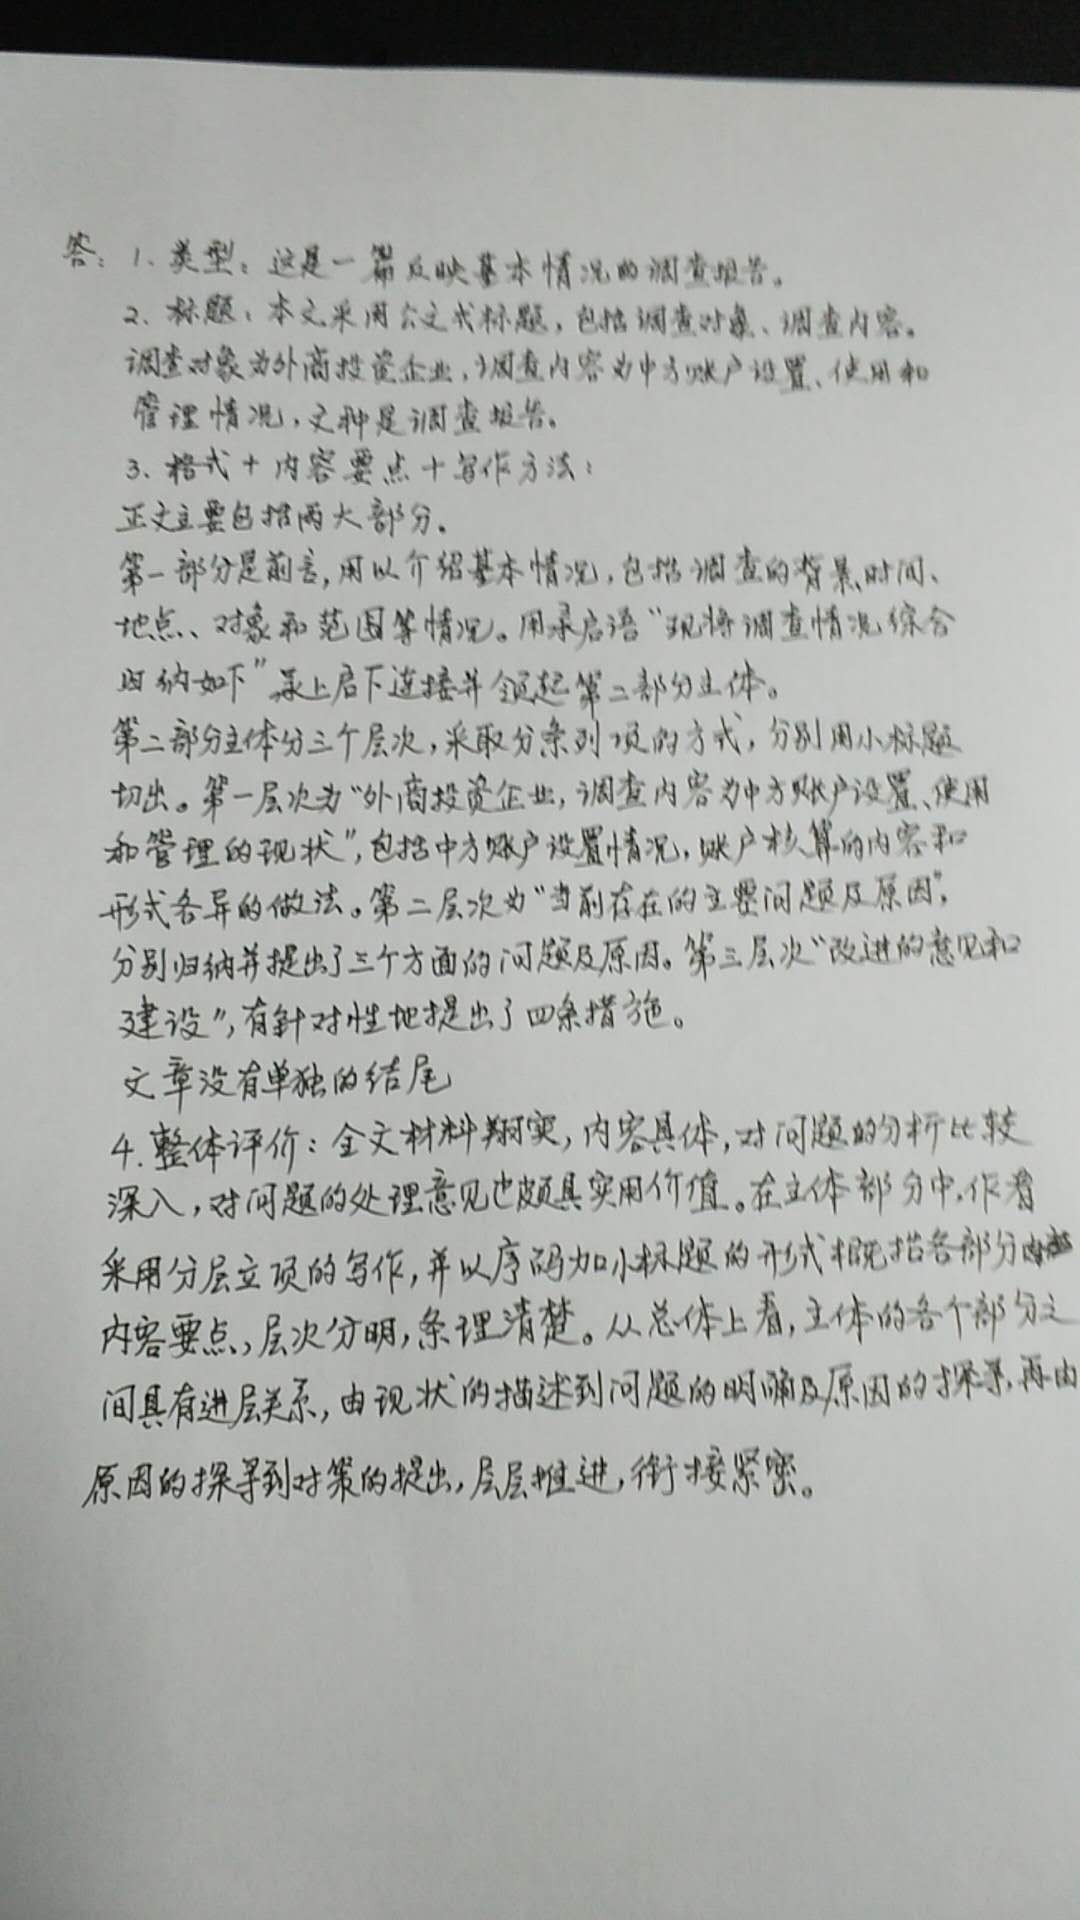 答：1、类型：这是一篇反映基本情况的调查报告。
2、标题：本文采用公文式标题，包括调查对象、调查内容。
调查对象为外商投资企业，调查内容为中方账户设置、使用和
管理情况，文种是调查报告。
3、格式+内容要点+写作方法：
正文主要包括两大部分。
第一部分是前言，用以介绍基本情况，包括调查的背景、时间、
地点、对象和范围等情况。用承启语“现将调查情况综合
归纳如下”承上启下连接并领起第二部分主体。
第二部分主体分三个层次，采取分条列项的方式，分别用小标题
切出。第一层次为“外商投资企业，调查内容为中方账户设置、使用
和管理的现状”，包括中方账户设置情况，账户核算的内容和
形式各异的做法。第二层次为“当前存在的主要问题及原因”，
分别归纳并提出了三个方面的问题及原因。第三层次“改进的意见和
建设”，有针对性地提出了四条措施。
文章没有单独的结尾
4.整体评价：全文材料翔实，内容具体，对问题的分析比较
深入，对问题的处理意见也颇具实用价值。在主体部分中，作者
采用分层立项的写作，并以序码加小标题的形式概括各部分
内容要点，层次分明，条理清楚。从总体上看，主体的各个部分之
间具有进层关系，由现状的描述到问题的明确及原因的探寻，再由
原因的探寻到对策的提出，层层推进，衔接紧密。